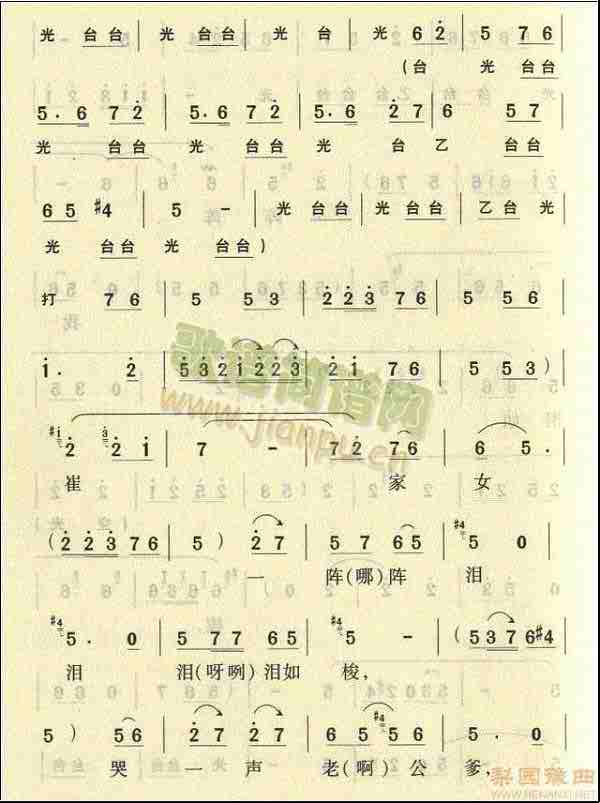 光 台台 | 光 台台 | 光 台 | 光 6 2̇ | 5 7 6 |
(台 光 台台
5. 6 7 2̇ | 5. 6 7 2̇ | 5. 6 7 2̇ | 2̇ 7 6 | 5 7 |
光 台台 光 台台 光 台 乙 台台
6 5 #4 | 5 - | 光 台台 | 光 台台 | 乙台 光 |
光 台台 光 台台)
打 7 6 | 5 5 3 | 2̇ 2̇ 3̇ 7 6 | 5 5 6 |
1̇. 2̇ | 5̇ 3̇ 2̇ 1̇ 2̇ 2̇ 3̇ | 2̇ 1̇ 7 6 | 5 5 3 ) |
2̇ 2̇ 1̇ | 7 - | 7 2̇ 7 6 | 6 5. |
崔 家 女
( 2̇ 2̇ 3̇ 7 6 | 5 ) 2̇ 7 | 5 7 6 5 | #4 5 0 |
一 阵(哪)阵 泪
#4 5. 0 | 5 7 7 6 5 | #4 5 - | ( 5 3 7 6 #4 |
泪 泪(呀咧)泪如 梭,
5 ) 5 6 | 2̇ 7 2̇ 7 | 6 5 5 6 | 5. 0 |
哭 一 声 老(啊)公 爹,
歌谱简谱网
www.jianpu.cn
梨园豫曲
WWW.HENANXI.NET